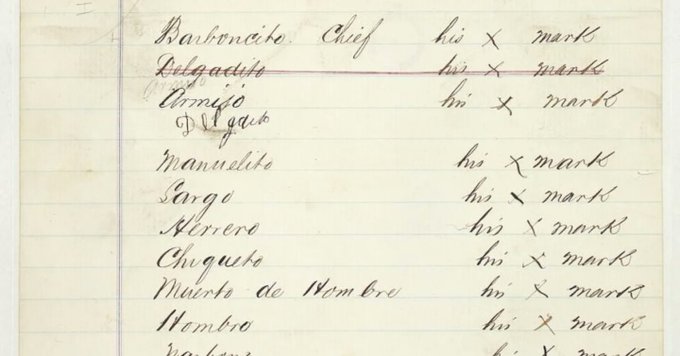 Barboncito. Chief his x mark
Delgadito his x mark
Armijo
Armijo his x mark
Delgadito
Manuelito his x mark
Largo his x mark
Herrero his x mark
Chiqueto his x mark
Muerto de Hombre his x mark
Hombro his x mark
his x mark